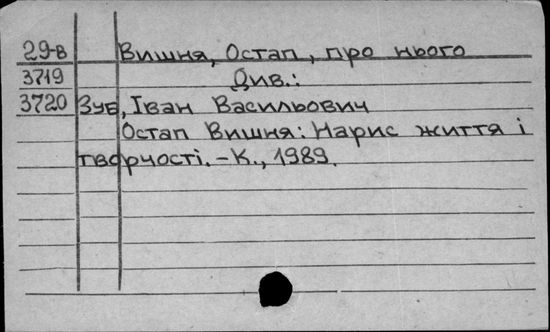 29-в Вишня, Остап, про нього
3719 Див.:
3720 Зуб, Іван Васильович
Остап Вишня: Нарис життя і
творчості. – К., 1989.